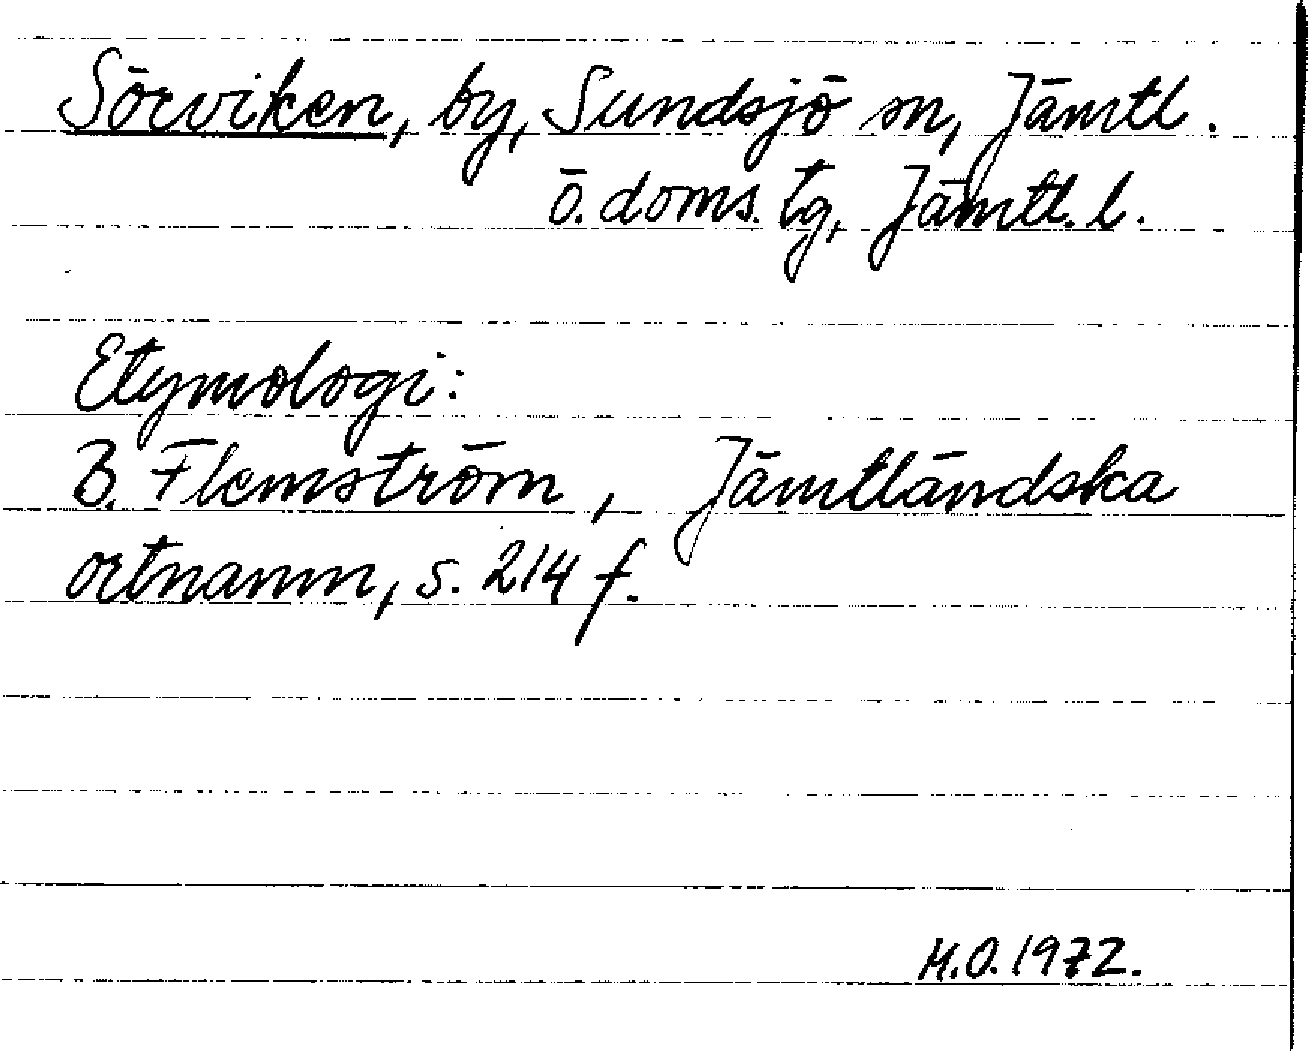 Sörviken, by, Sundsjö sn, Jämtl.
ö. doms. tg, Jämtl. l.
Etymologi:
B. Flemström, Jämtländska
ortnamn, s. 214 f.
M.O. 1972.